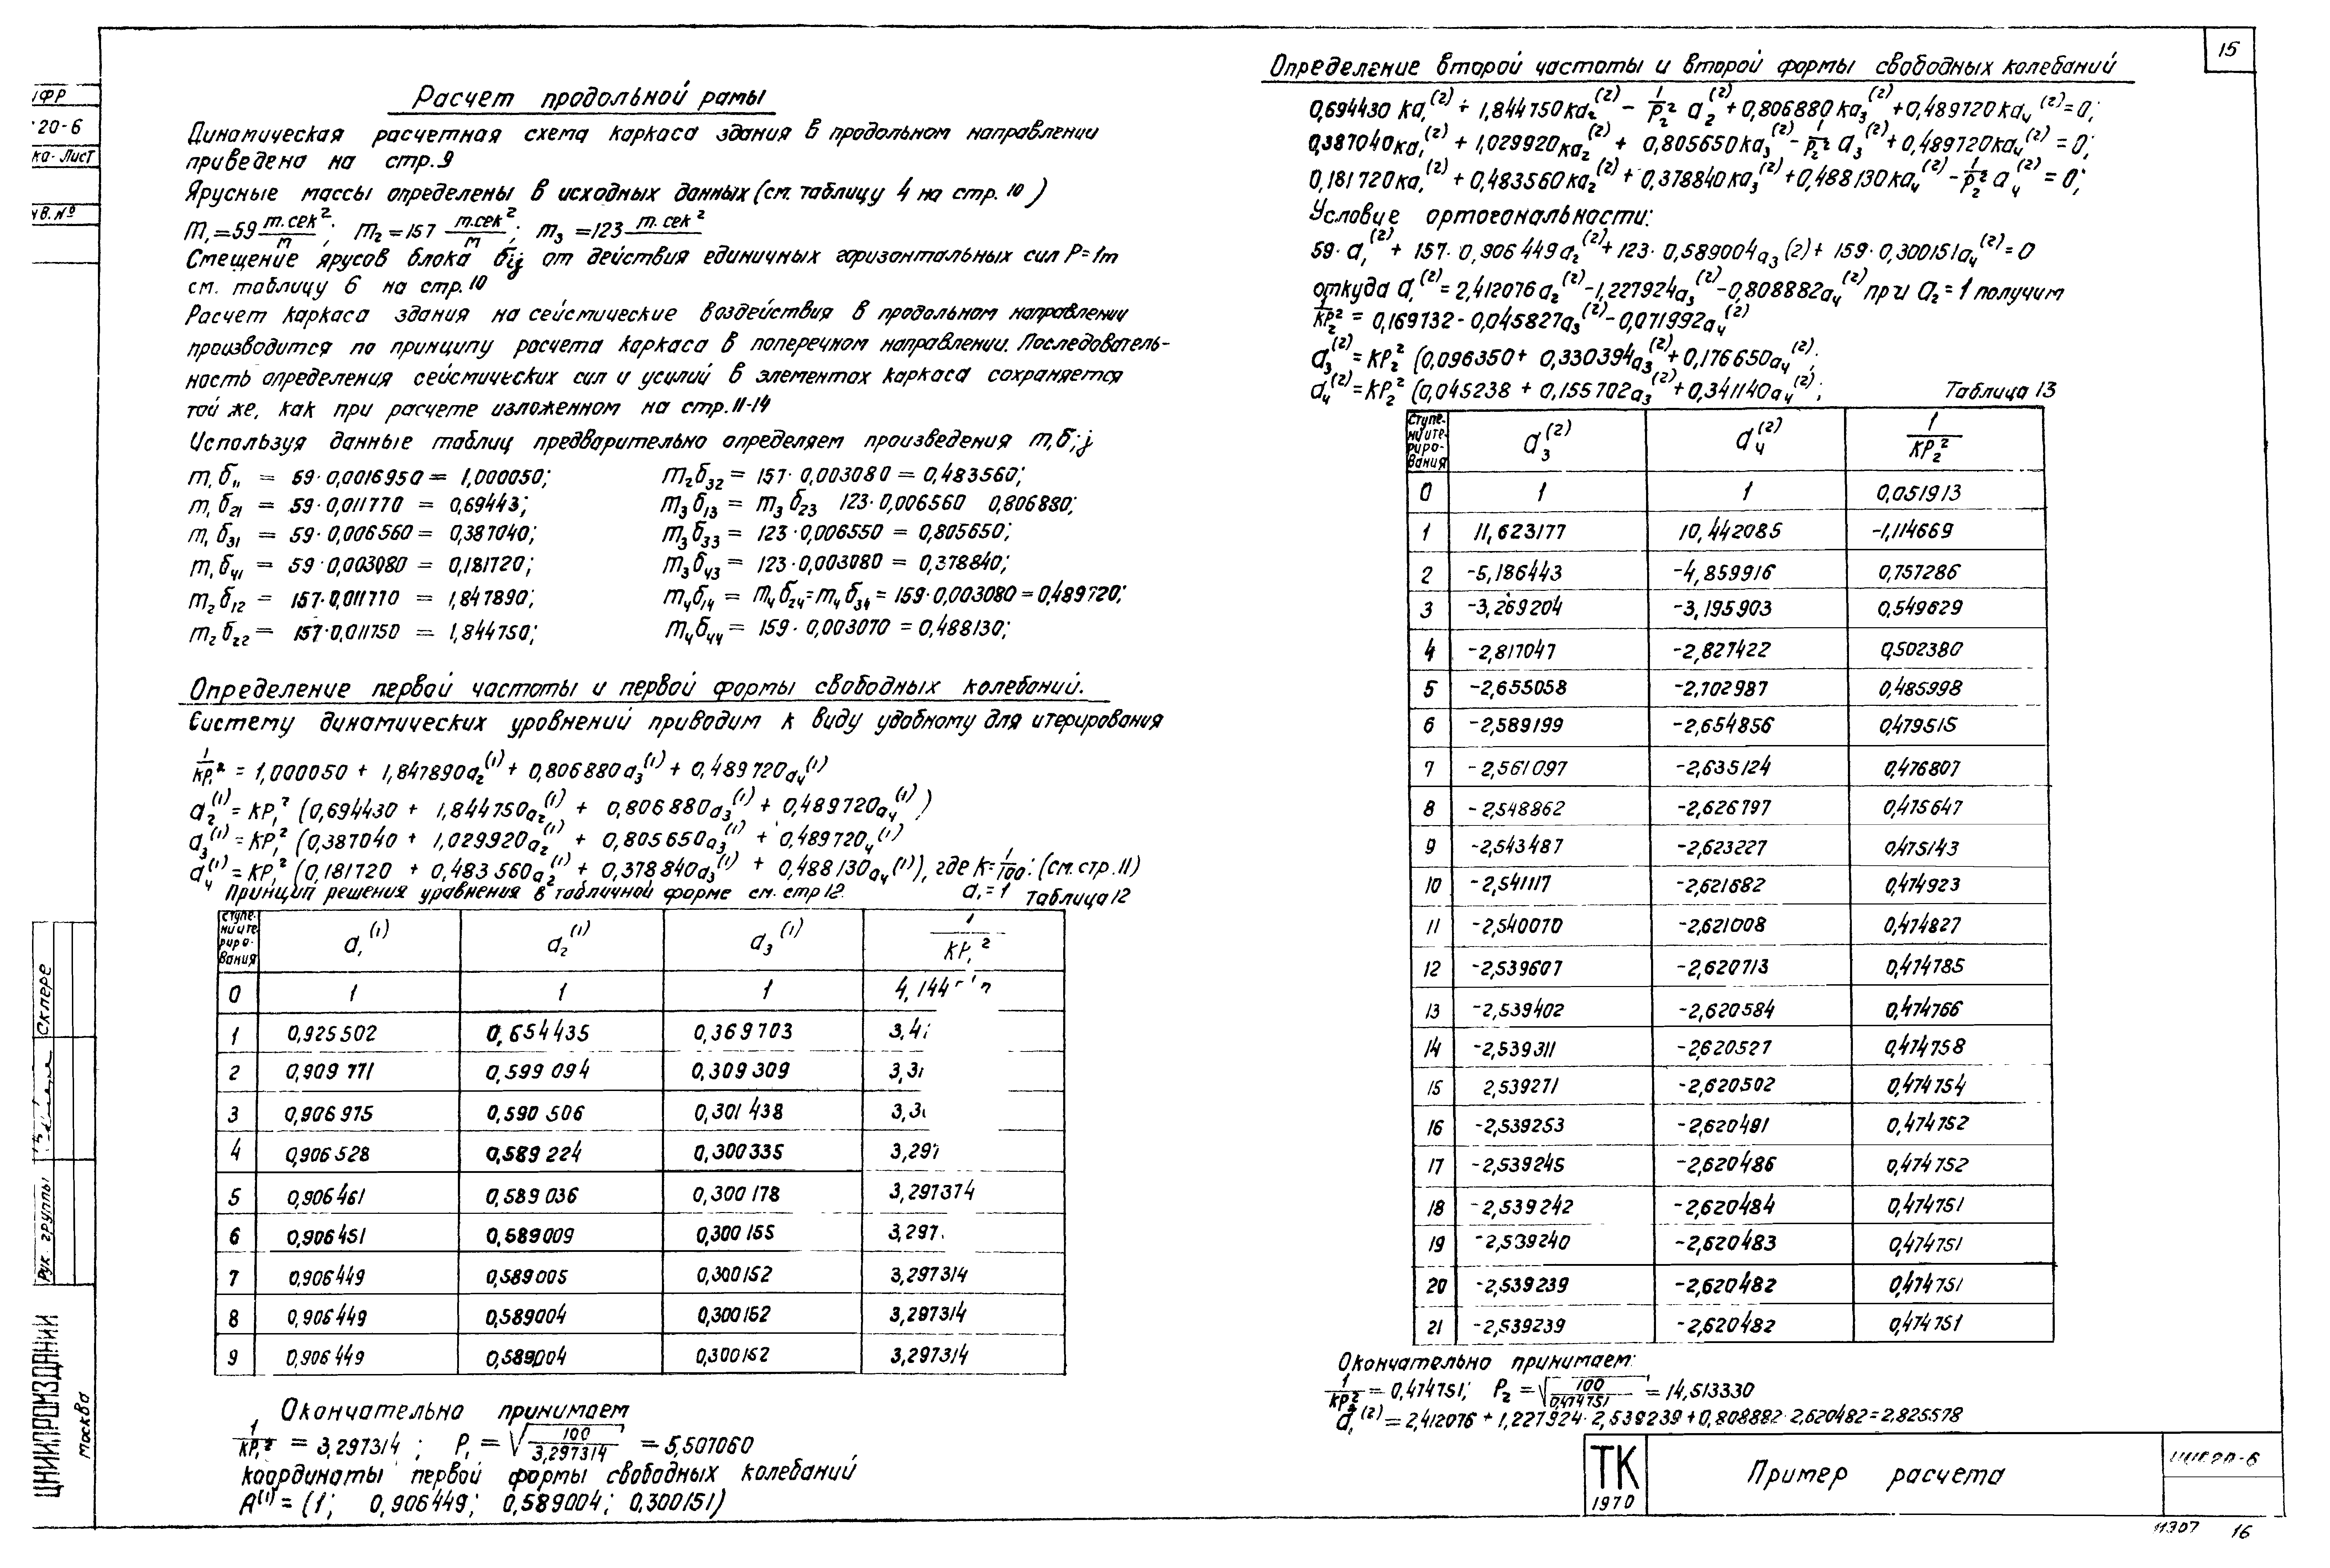 15
ІФР
20-6
ка-Лист
ив.№
Расчет продольной рамы
Динамическая расчетная схема каркаса здания в продольном направлении
приведена на стр.9
Ярусные массы определены в исходных данных (см. таблицу 4 на стр. 10)
m₁=59 т.сек²/м; m₂=157 т.сек²/м; m₃=123 т.сек²
Смещение ярусов блока δij от действия единичных горизонтальных сил P=1т
см. таблицу 6 на стр.10
Расчет каркаса здания на сейсмические воздействия в продольном направлении
производится по принципу расчета каркаса в поперечном направлении. Последователь-
ность определения сейсмических сил и усилий в элементах каркаса сохраняется
той же, как при расчете изложенном на стр.11-14
Используя данные таблиц предварительно определяем произведения m,δ;j
m₁δ₁₁ = 59·0,0016950 = 1,000050;
m₁δ₂₁ = 59·0,011770 = 0,69443;
m₁δ₃₁ = 59·0,006560 = 0,387040;
m₁δ₄₁ = 59·0,003080 = 0,181720;
m₂δ₁₂ = 157·0,011770 = 1,847890;
m₂δ₂₂ = 157·0,011750 = 1,844750;
m₂δ₃₂ = 157·0,003080 = 0,483560;
m₃δ₁₃ = m₃δ₂₃ 123·0,006560 0,806880;
m₃δ₃₃ = 123·0,006550 = 0,805650;
m₃δ₄₃ = 123·0,003080 = 0,378840;
m₄δ₁₄ = m₄δ₂₄=m₄δ₃₄ = 159·0,003080 = 0,489720;
m₄δ₄₄ = 159·0,003070 = 0,488130;
Определение первой частоты и первой формы свободных колебаний.
Систему динамических уровнений приводим к виду удобному для итерирования
1/KP₁² = 1,000050 + 1,847890a₂⁽¹⁾ + 0,806880a₃⁽¹⁾ + 0,489720a₄⁽¹⁾
a₂⁽¹⁾ = KP₁² (0,694430 + 1,844750a₂⁽¹⁾ + 0,806880a₃⁽¹⁾ + 0,489720a₄⁽¹⁾)
a₃⁽¹⁾ = KP₁² (0,387040 + 1,029920a₂⁽¹⁾ + 0,805650a₃⁽¹⁾ + 0,489720₄⁽¹⁾
a₄⁽¹⁾ = KP₁² (0,181720 + 0,483560a₂⁽¹⁾ + 0,378840a₃⁽¹⁾ + 0,488130a₄⁽¹⁾), где K=1/100; (см.стр.11)
Принцип решения уравнения в табличной форме см. стр 12. a₁=1 Таблица 12
Ступе-
ни ите
рира-
вания
a₁⁽¹⁾ a₂⁽¹⁾ a₃⁽¹⁾ 1/KP₁²
0 1 1 1 4,144
1 0,925502 0,654435 0,369703 3,4
2 0,909771 0,599094 0,309309 3,3
3 0,906975 0,590506 0,301438 3,3
4 0,906528 0,589224 0,300335 3,297
5 0,906461 0,589036 0,300178 3,297374
6 0,906451 0,589009 0,300155 3,297
7 0,906449 0,589005 0,300152 3,297314
8 0,906449 0,589004 0,300152 3,297314
9 0,906449 0,589004 0,300152 3,297314
Окончательно принимаем
1/KP₁² = 3,297314; P₁ = √(100/3,297314) = 5,507060
координаты первой формы свободных колебаний
A⁽¹⁾ = (1; 0,906449; 0,589004; 0,300151)
Определение второй частоты и второй формы свободных колебаний
0,694430 ka₁⁽²⁾ + 1,844750ka₂⁽²⁾ - 1/P₂² a₂⁽²⁾ + 0,806880 ka₃⁽²⁾ + 0,489720ka₄⁽²⁾ = 0;
0,387040ka₁⁽²⁾ + 1,029920ka₂⁽²⁾ + 0,805650ka₃⁽²⁾ - 1/P₂² a₃⁽²⁾ + 0,489720ka₄⁽²⁾ = 0;
0,181720ka₁⁽²⁾ + 0,483560ka₂⁽²⁾ + 0,378840ka₃⁽²⁾ + 0,488130ka₄⁽²⁾ - 1/P₂² a₄⁽²⁾ = 0;
Условие ортогональности:
59·a₁⁽²⁾ + 157·0,906449a₂⁽²⁾ + 123·0,589004a₃(2) + 159·0,300151a₄⁽²⁾ = 0
откуда a₁⁽²⁾ = 2,412076a₂⁽²⁾ - 1,227924a₃⁽²⁾ - 0,808882a₄⁽²⁾ при a₂ = 1 получим
1/KP₂² = 0,169732 - 0,045827a₃⁽²⁾ - 0,071992a₄⁽²⁾
a₃⁽²⁾ = KP₂² (0,096350 + 0,330394a₃⁽²⁾ + 0,176650a₄⁽²⁾;
a₄⁽²⁾ = KP₂² (0,045238 + 0,155702a₃⁽²⁾ + 0,341140a₄⁽²⁾; Таблица 13
Ступе-
ни ите-
риро-
вания
a₃⁽²⁾ a₄⁽²⁾ 1/KP₂²
0 1 1 0,051913
1 11,623177 10,442085 -1,114669
2 -5,186443 -4,859916 0,757286
3 -3,269204 -3,195903 0,549629
4 -2,817047 -2,827422 0,502380
5 -2,655058 -2,702987 0,485998
6 -2,589199 -2,654856 0,479515
7 -2,561097 -2,635124 0,476807
8 -2,548862 -2,626797 0,475647
9 -2,543487 -2,623227 0,475143
10 -2,541117 -2,621682 0,474923
11 -2,540070 -2,621008 0,474827
12 -2,539607 -2,620713 0,474785
13 -2,539402 -2,620584 0,474766
14 -2,539311 -2,620527 0,474758
15 2,539271 -2,620502 0,474754
16 -2,539253 -2,620491 0,474752
17 -2,539245 -2,620486 0,474752
18 -2,539242 -2,620484 0,474751
19 -2,539240 -2,620483 0,474751
20 -2,539239 -2,620482 0,474751
21 -2,539239 -2,620482 0,474751
Окончательно принимаем:
1/KP₂² = 0,474751; P₂ = √(100/0,474751) = 14,513330
a₁⁽²⁾ = 2,412076 + 1,227924·2,539239 + 0,808882·2,620482 = 2,825578
ТК
1970
Пример расчета
ИИ20-6
11307 16
Рук. группы
Скпере
ЦНИИПРОМЗДАНИЙ
Москва